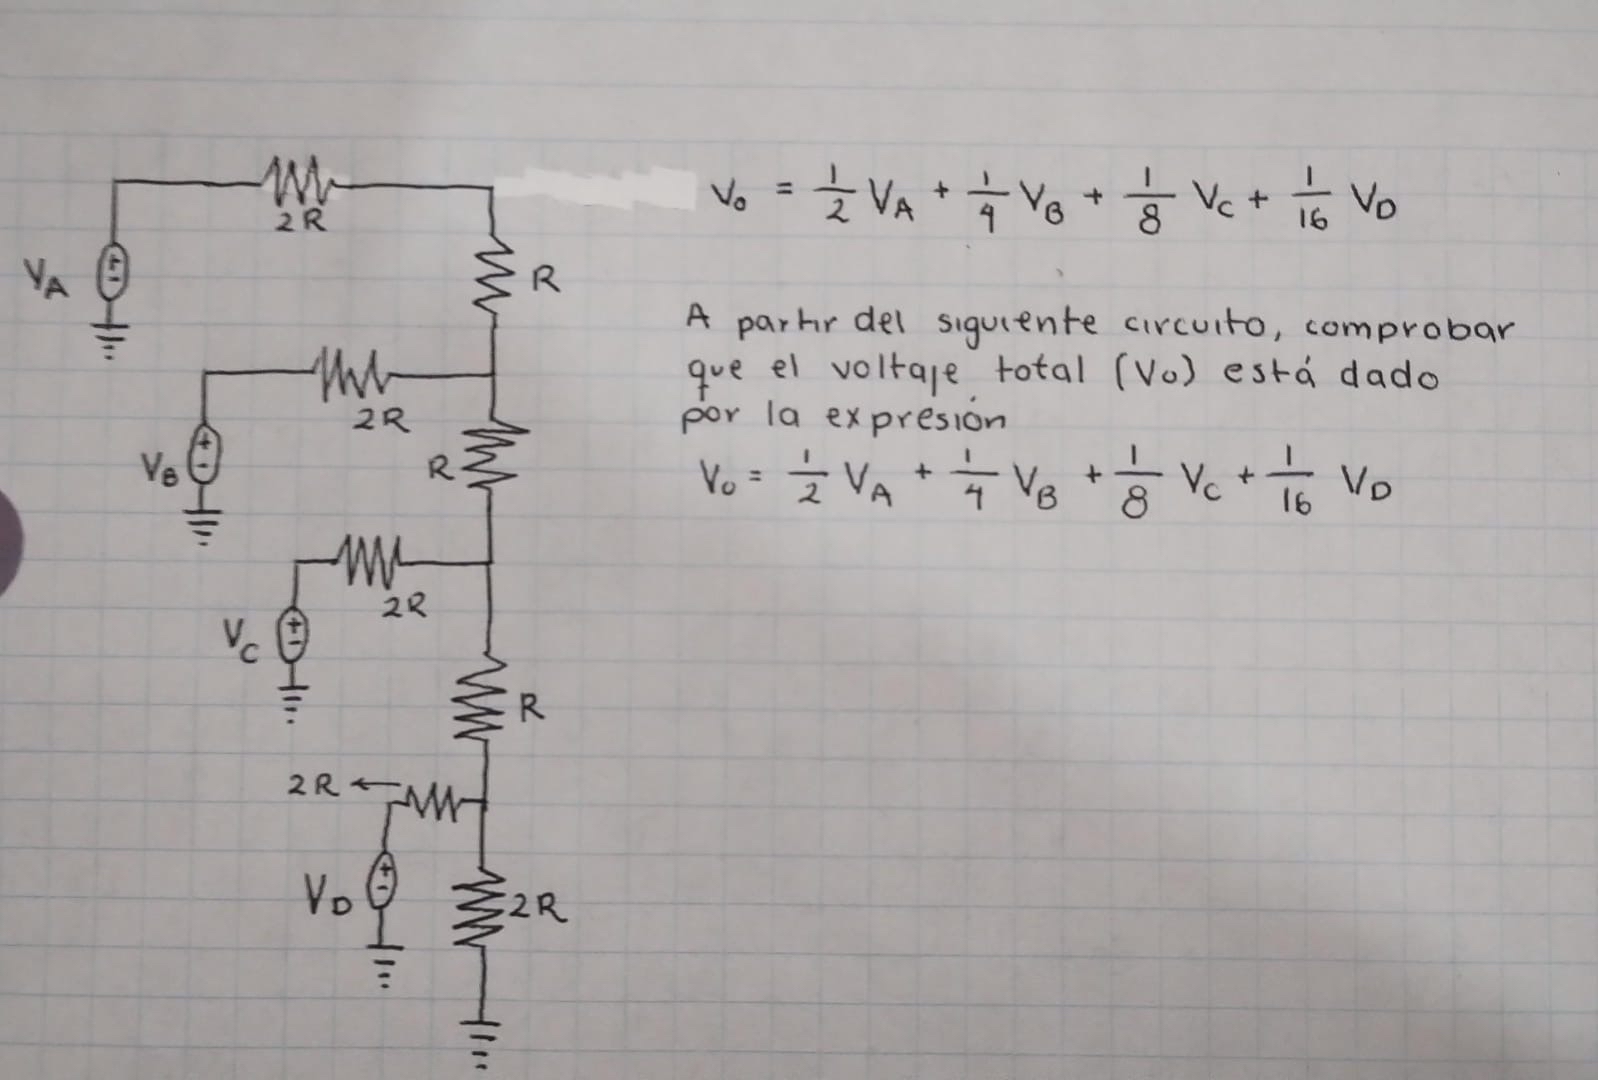 V₀ = 1/2 V_A + 1/4 V_B + 1/8 V_C + 1/16 V_D
2R
V_A
R
A partir del siguiente circuito, comprobar
que el voltaje total (V₀) está dado
por la expresión
V₀ = 1/2 V_A + 1/4 V_B + 1/8 V_C + 1/16 V_D
2R
V_B
R
2R
V_C
R
2R
V_D
2R